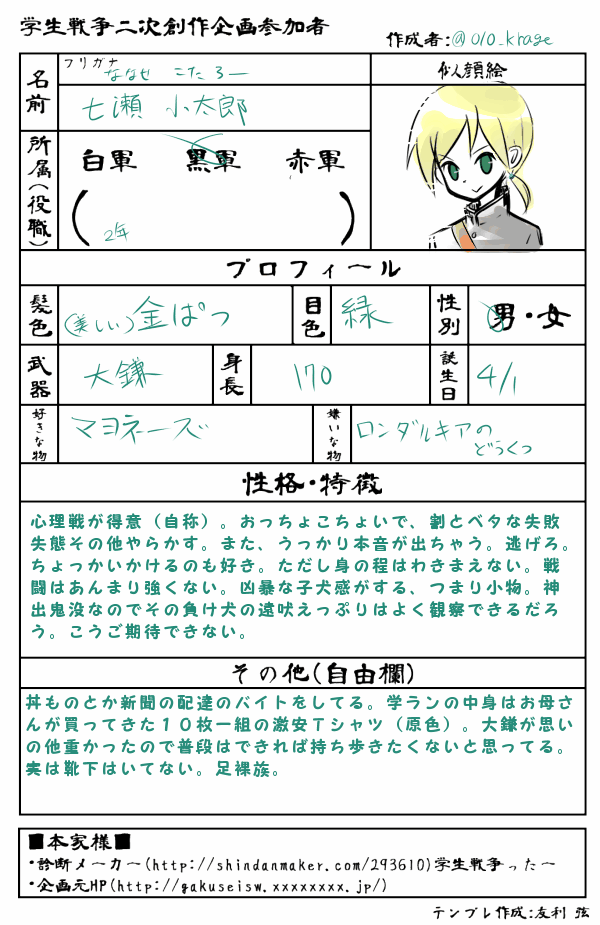 学生戦争二次創作企画参加者
作成者:@010_krage
名前
フリガナ
ななせ こたろー
七瀬 小太郎
似顔絵
所属(役職)
白軍 黒軍 赤軍
( 2年 )
プロフィール
髪色 (美しい)金ぱつ 目色 緑 性別 男・女
武器 大鎌 身長 170 誕生日 4/1
好きな物 マヨネーズ 嫌いな物 ロンダルキアの
どうくつ
性格・特徴
心理戦が得意(自称)。おっちょこちょいで、割とベタな失敗
失態その他やらかす。また、うっかり本音が出ちゃう。逃げろ。
ちょっかいかけるのも好き。ただし身の程はわきまえない。戦
闘はあんまり強くない。凶暴な子犬感がする、つまり小物。神
出鬼没なのでその負け犬の遠吠えっぷりはよく観察できるだろ
う。こうご期待できない。
その他(自由欄)
丼ものとか新聞の配達のバイトをしてる。学ランの中身はお母さ
んが買ってきた10枚一組の激安Tシャツ(原色)。大鎌が思い
の他重かったので普段はできれば持ち歩きたくないと思ってる。
実は靴下はいてない。足裸族。
■本家様■
・診断メーカー(http://shindanmaker.com/293610)学生戦争ったー
・企画元HP(http://gakuseisw.xxxxxxxx.jp/)
テンプレ作成:友利 弦